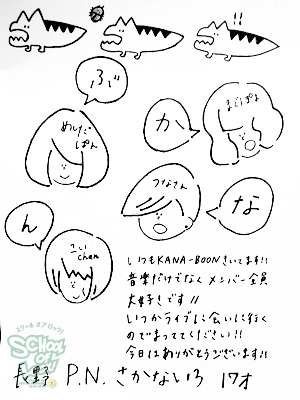 !!
ぶ
めしだ
ぱん
まぐぱよ
か
こいちゃん
つなさん
な
ん
いつもKANA-BOONきいてます!!
音楽だけでなくメンバー全員
大好きです!!
いつかライブに会いに行く
のでまっててください!!
今日はありがとうございます!!
スクール オブ ロック!
SCHOOL OF LOCK!
長野 P.N. さかないろ 17才